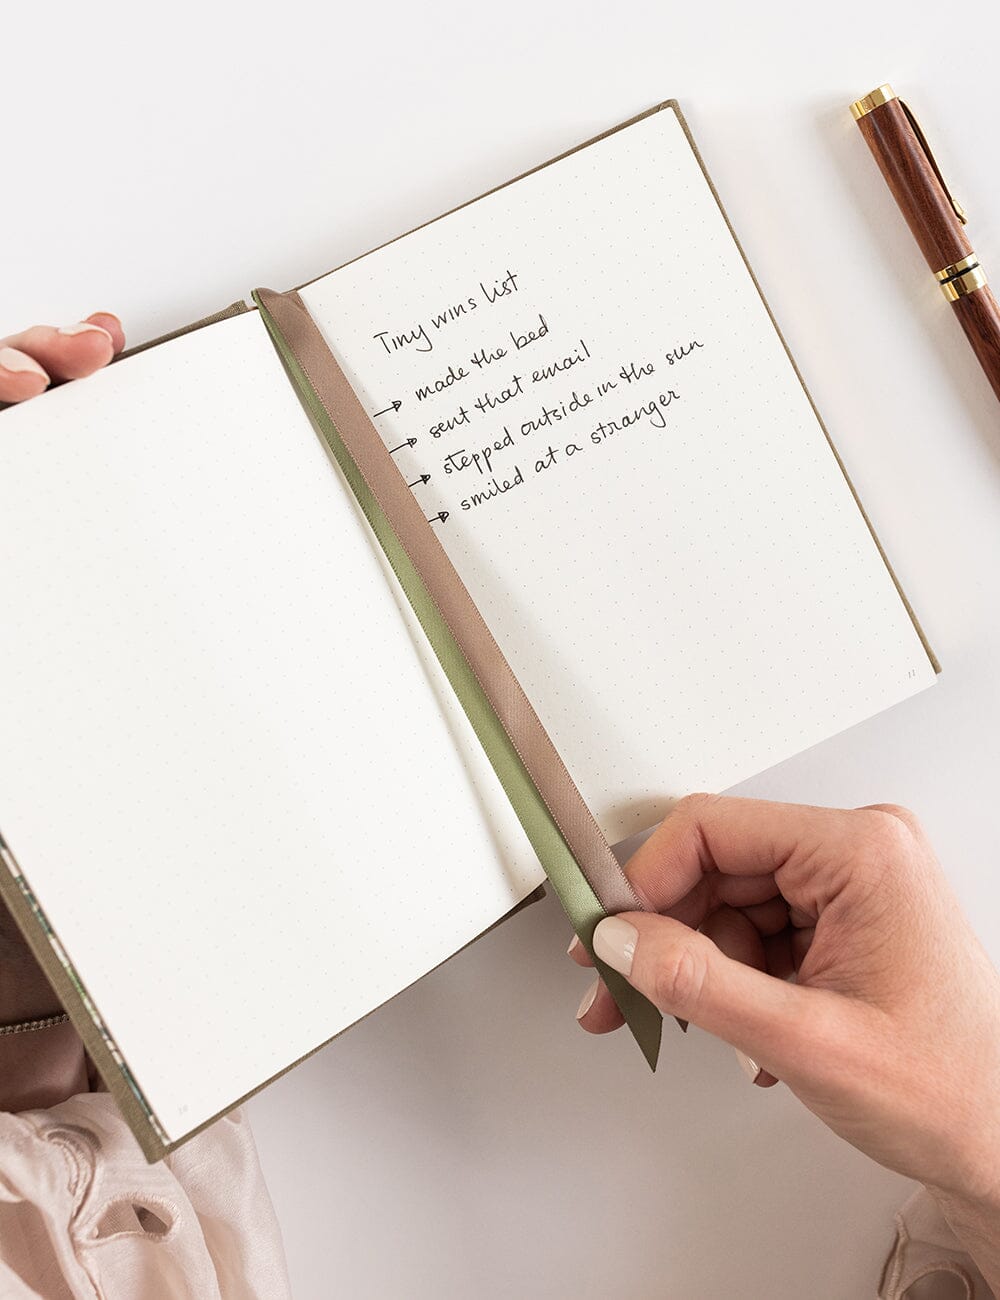 Tiny wins list
→ made the bed
→ sent that email
→ stepped outside in the sun
→ smiled at a stranger
11